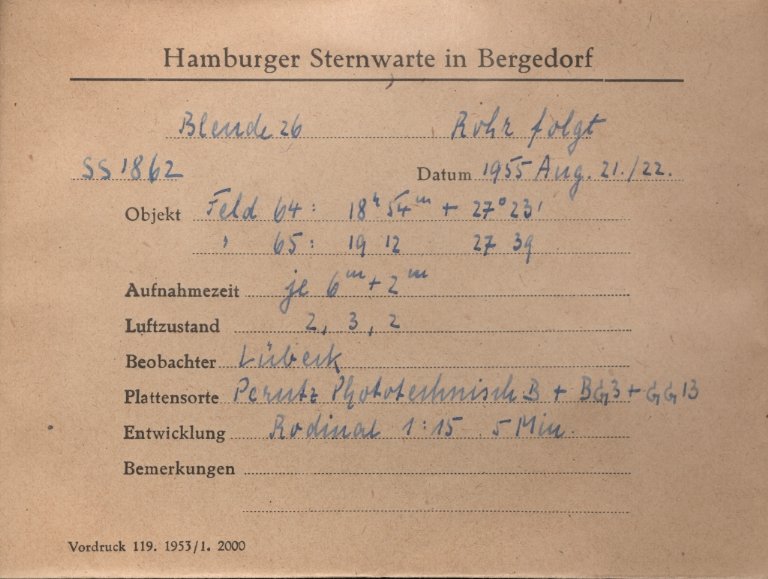 Hamburger Sternwarte in Bergedorf
Blende 26 Rohr folgt
SS 1862 Datum 1955 Aug. 21./22.
Objekt Feld 64: 18ʰ 54ᵐ + 27° 23'
" 65: 19 12 27 39
Aufnahmezeit je 6ᵐ + 2ᵐ
Luftzustand 2, 3, 2
Beobachter Lübeck
Plattensorte Perutz Phototechnisch B + BG3 + GG13
Entwicklung Rodinal 1:15 5 Min.
Bemerkungen
Vordruck 119. 1953/1. 2000